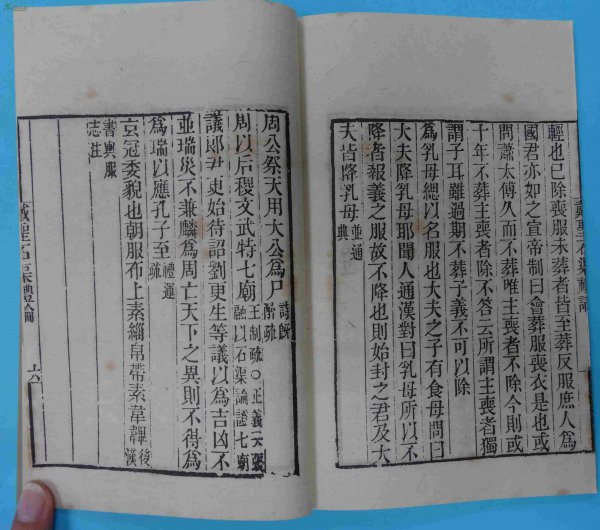 輕也已除喪服未葬者皆至葬反服庶人爲
國君亦如之宣帝制曰會葬服喪衣是也或
問蕭太傅久而不葬唯主喪者不除今則或
十年不葬主喪者除不答云所謂主喪者獨
謂子耳雖過期不葬子義不可以除
爲乳母緦以名服也大夫之子有食母問曰
大夫降乳母耶聞人通漢對曰乳母所以不
降者報義之服故不降也則始封之君及大
夫皆降乳母並通典
戴聖石渠禮論
周公祭天用大公爲尸詩旣醉疏
周以后稷文武特七廟王制疏○正義云張融以石渠論證七廟
議郎尹更始待詔劉更生等議以爲吉凶不
並瑞災不兼麟爲周亡天下之異則不得爲
爲瑞以應孔子至禮運疏
玄冠委貌也朝服布上素緇帛帶素韋韠後漢
書輿服
志注
戴聖石渠禮論